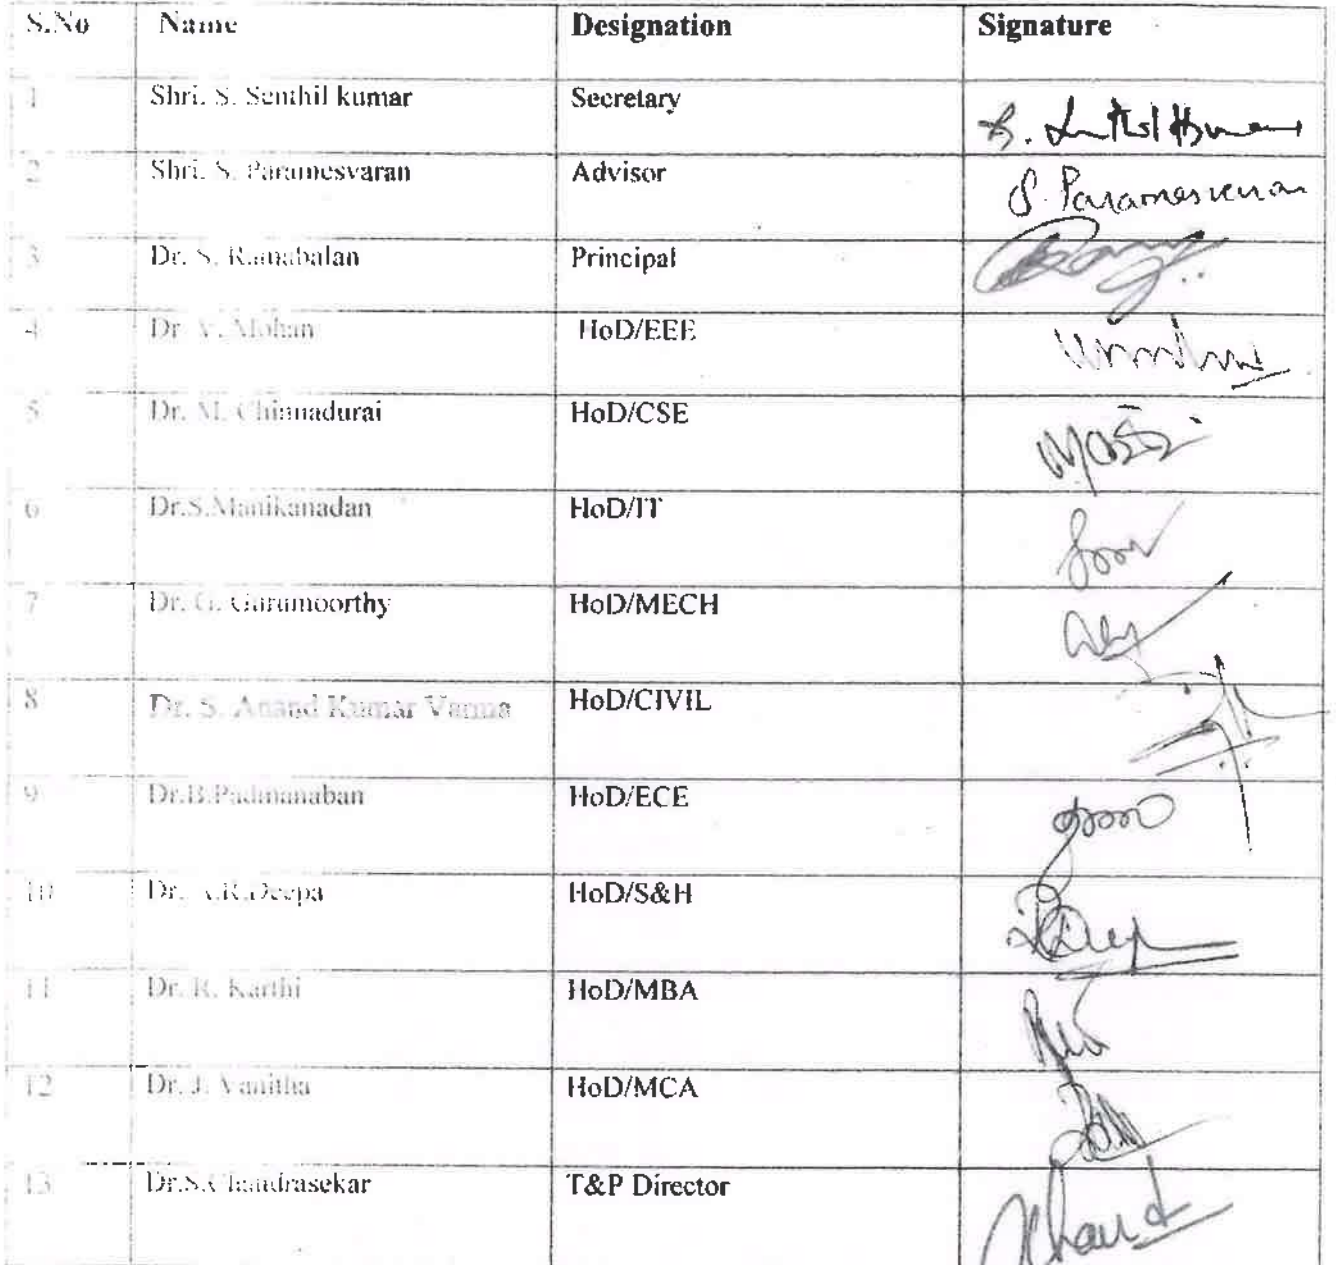 S.No Name Designation Signature
1 Shri. S. Senthil kumar Secretary
2 Shri. S. Paramesvaran Advisor S. Paramesvaran
3 Dr. S. Ramabalan Principal
4 Dr. V. Mohan HoD/EEE
5 Dr. M. Chinnadurai HoD/CSE
6 Dr.S.Manikanadan HoD/IT
7 Dr. G. Gurumoorthy HoD/MECH
8 Dr. S. Anand Kumar Varma HoD/CIVIL
9 Dr.B.Padmanaban HoD/ECE
10 Dr. A.R.Deepa HoD/S&H
11 Dr. R. Karthi HoD/MBA
12 Dr. J. Vanitha HoD/MCA
13 Dr.S.Chandrasekar T&P Director